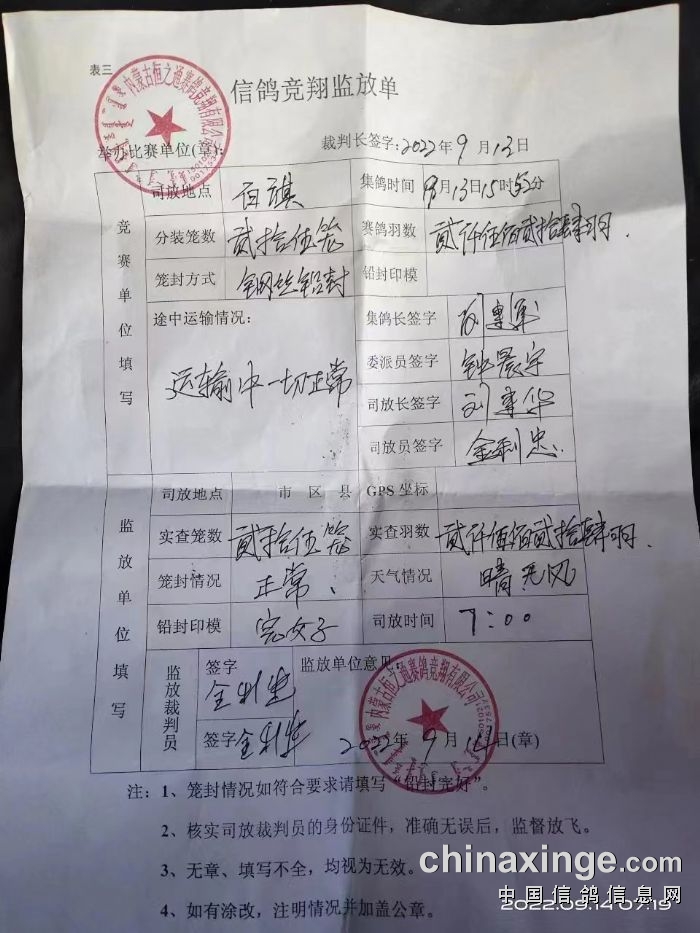 表三
信鸽竞翔监放单
举办比赛单位(章):
裁判长签字: 2022年9月13日
内蒙古恒之通赛鸽竞翔有限公司
竞赛单位填写
司放地点 白旗 集鸽时间 9月13日15时52分
分装笼数 贰拾伍笼 赛鸽羽数 贰仟伍佰贰拾肆羽.
笼封方式 钢丝铅封 铅封印模
途中运输情况: 运输中一切正常
集鸽长签字
委派员签字 钟晨宇
司放长签字
司放员签字 金利忠.
监放单位填写
司放地点 市 区 县 GPS坐标
实查笼数 贰拾伍笼 实查羽数 贰仟伍佰贰拾肆羽.
笼封情况 正常、 天气情况 晴无风
铅封印模 完好 司放时间 7:00
监放裁判员
签字
签字
监放单位意见:
内蒙古恒之通赛鸽竞翔有限公司
2022年9月14日(章)
注: 1、笼封情况如符合要求请填写“铅封完好”。
2、核实司放裁判员的身份证件，准确无误后，监督放飞。
3、无章、填写不全，均视为无效。
4、如有涂改，注明情况并加盖公章。
chinaxinge.com
中国信鸽信息网
2022.09.14 07:19